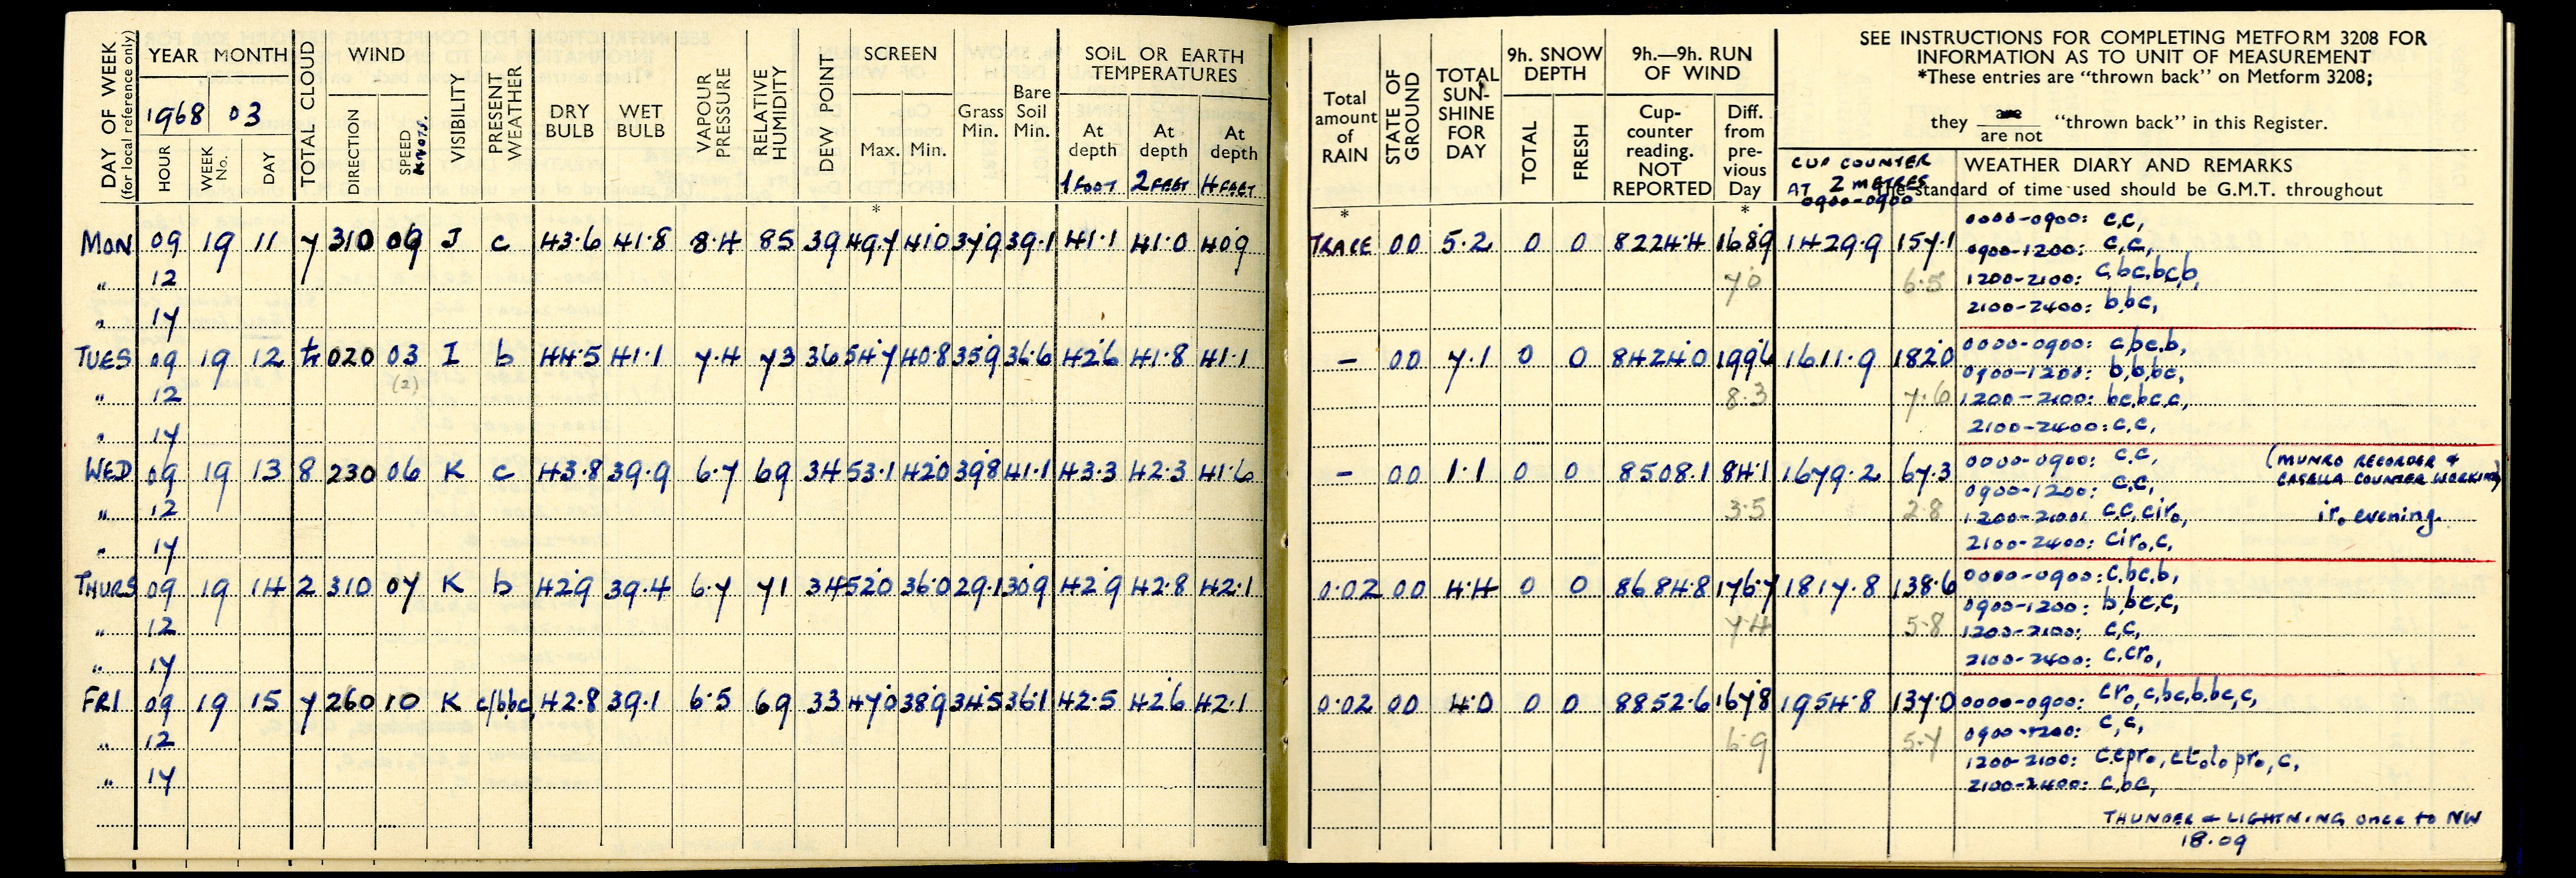 DAY OF WEEK (for local reference only) YEAR MONTH TOTAL CLOUD WIND VISIBILITY PRESENT WEATHER DRY BULB WET BULB VAPOUR PRESSURE RELATIVE HUMIDITY DEW POINT SCREEN Grass Min. Bare Soil Min. SOIL OR EARTH TEMPERATURES
1968 03
HOUR WEEK No. DAY DIRECTION SPEED KNOTS. Max. Min. At depth At depth At depth
1 FOOT 2 FEET 4 FEET
*
MON 09 19 11 7 310 09 J c 43.6 41.8 8.4 85 39 49.7 41.0 37.9 39.1 41.1 41.0 40.9
" 12
" 17
TUES 09 19 12 tr 020 03 I b 44.5 41.1 7.4 73 36 54.7 40.8 35.9 36.6 42.6 41.8 41.1
(2)
" 12
" 17
WED 09 19 13 8 230 06 K c 43.8 39.9 6.7 69 34 53.1 42.0 39.8 41.1 43.3 42.3 41.6
" 12
" 17
THURS 09 19 14 2 310 07 K b 42.9 39.4 6.7 71 34 52.0 36.0 29.1 30.9 42.9 42.8 42.1
" 12
" 17
FRI 09 19 15 7 260 10 K c/bbc, 42.8 39.1 6.5 69 33 47.0 38.9 34.5 36.1 42.5 42.6 42.1
" 12
" 17
Total amount of RAIN STATE OF GROUND TOTAL SUN- SHINE FOR DAY 9h. SNOW DEPTH 9h.—9h. RUN OF WIND
TOTAL FRESH Cup- counter reading. NOT REPORTED Diff. from pre- vious Day
SEE INSTRUCTIONS FOR COMPLETING METFORM 3208 FOR
INFORMATION AS TO UNIT OF MEASUREMENT
*These entries are "thrown back" on Metform 3208;
they are / are not "thrown back" in this Register.
CUP COUNTER AT 2 METRES 0900-0900
WEATHER DIARY AND REMARKS
The standard of time used should be G.M.T. throughout
* *
TRACE 00 5.2 0 0 8224.4 168.9 1429.9 157.1 0000-0900: c,c,
0900-1200: c,c,
7.0 6.5 1200-2100: c,bc,bc,b,
2100-2400: b,bc,
— 00 7.1 0 0 8424.0 199.6 1611.9 182.0 0000-0900: c,bc,b,
0900-1200: b,b,bc,
8.3 7.6 1200-2100: bc,bc,c,
2100-2400: c,c,
— 00 1.1 0 0 8508.1 84.1 1679.2 67.3 0000-0900: c,c, (MUNRO RECORDER &
0900-1200: c,c, CASELLA COUNTER WORKING)
3.5 2.8 1200-2100: c,c,ciro, iro evening.
2100-2400: ciro,c,
0.02 00 4.4 0 0 8684.8 176.7 1817.8 138.6 0000-0900: c,bc,b,
0900-1200: b,bc,c,
7.4 5.8 1200-2100: c,c,
2100-2400: c,cro,
0.02 00 4.0 0 0 8852.6 167.8 1954.8 137.0 0000-0900: cro,c,bc,b,bc,c,
0900-1200: c,c,
6.9 5.7 1200-2100: c,cpro, pro, c,
2100-2400: c,bc,
THUNDER & LIGHTNING once to NW
18.09